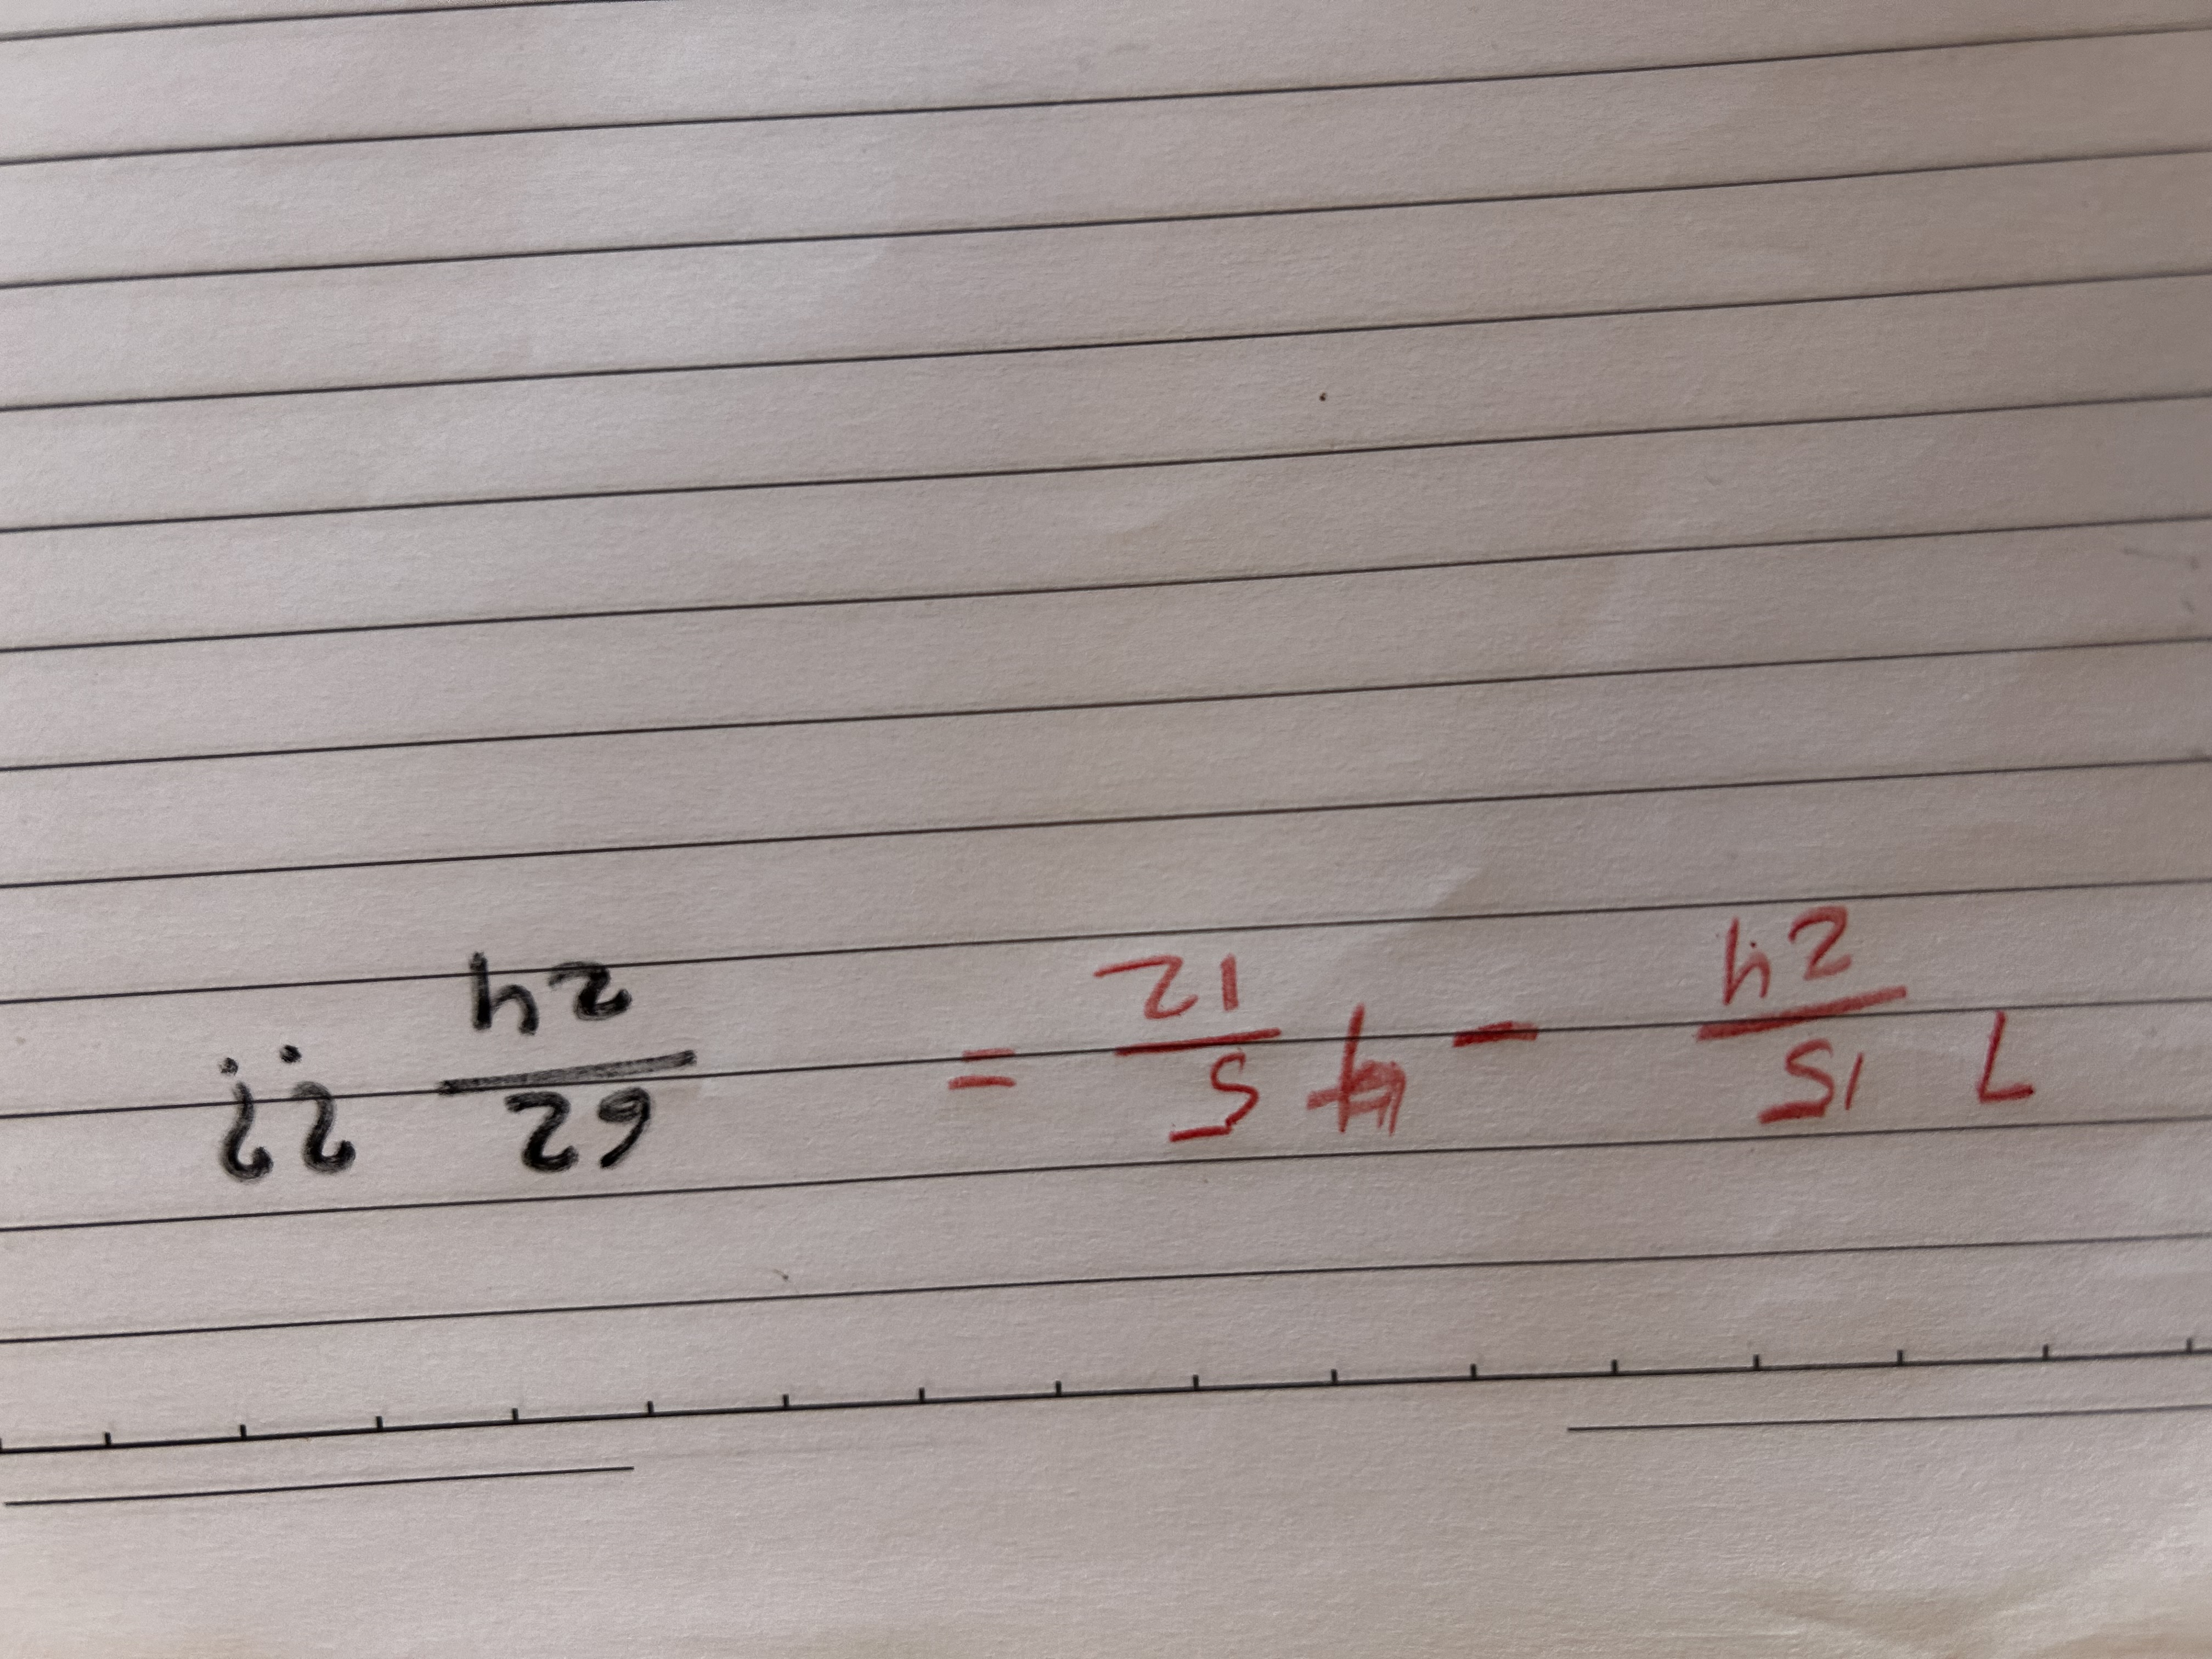 7 15/24 - 4 5/12 = 62/24 ??